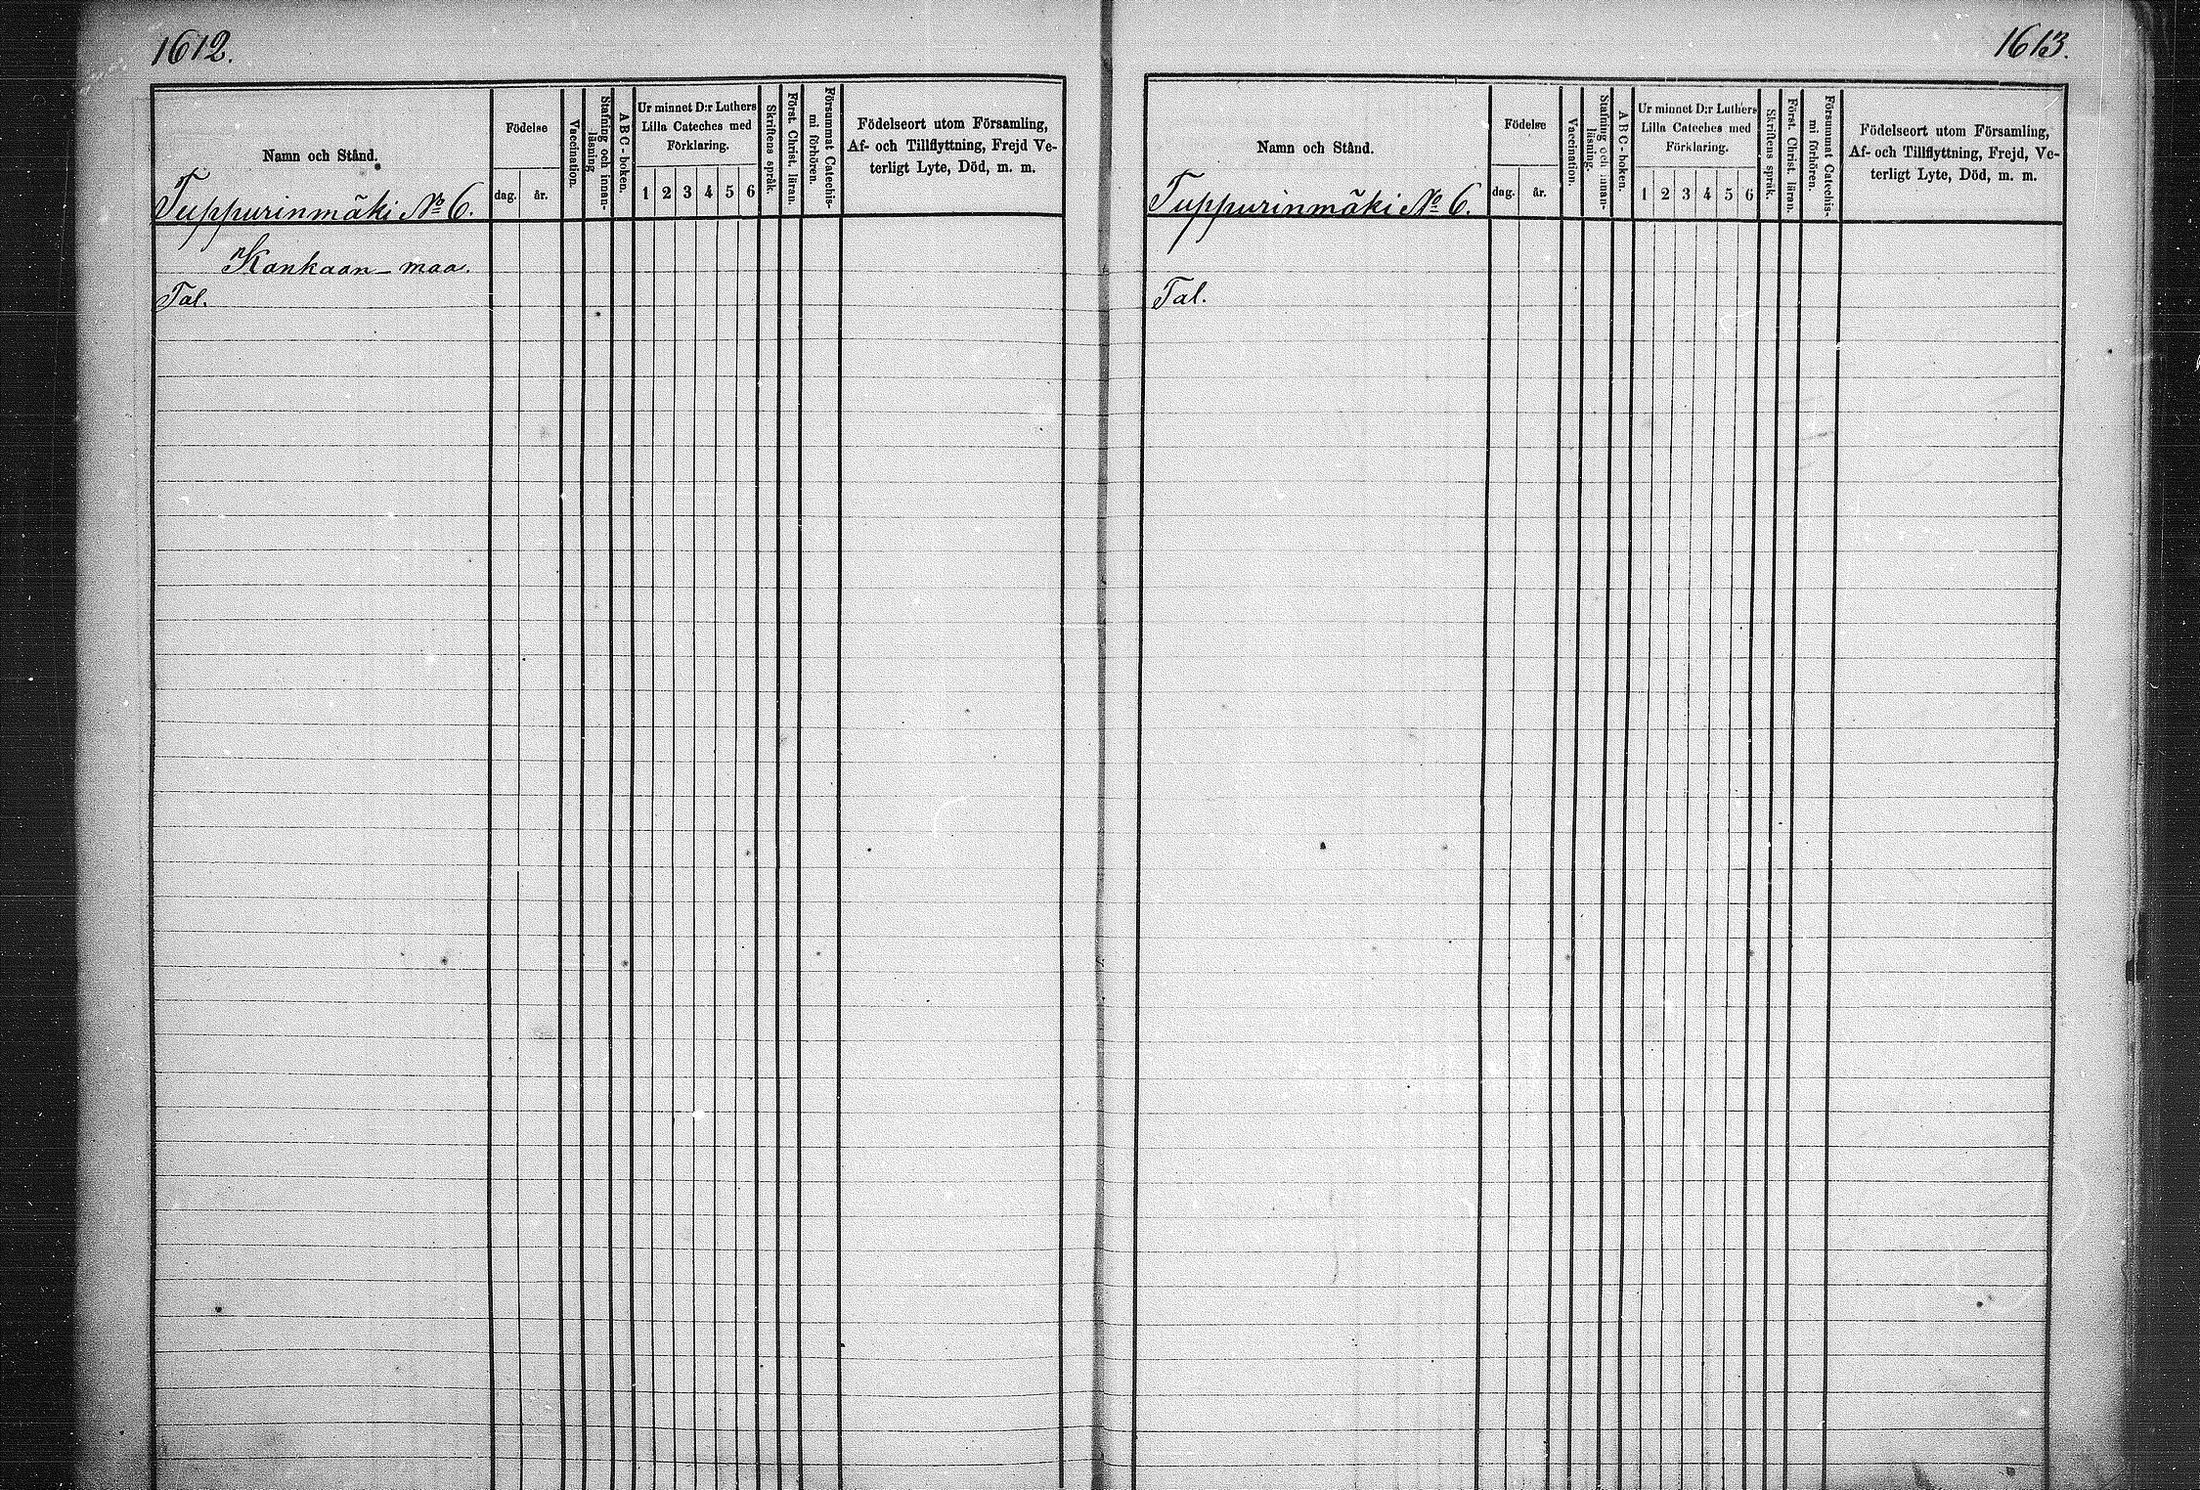 1612.
Namn och Stånd.
Tuppurinmäki No 6.
Födelse
dag.
år.
Vaccination.
Stafning och innan-
läsning
A B C - boken.
Ur minnet D:r Luthers
Lilla Cateches med
Förklaring.
1 2 3 4 5 6
Skriftens språk.
Först. Christ. läran.
Försummat Catechis-
mi förhören.
Födelseort utom Församling,
Af- och Tillflyttning, Frejd Ve-
terligt Lyte, Död, m. m.
Kankaan-maa.
Tal.
1613.
Namn och Stånd.
Tuppurinmäki No 6.
Födelse
dag.
år.
Vaccination.
Stafning och innan-
läsning.
A B C - boken.
Ur minnet D:r Luthers
Lilla Cateches med
Förklaring.
1 2 3 4 5 6
Skriftens språk.
Först. Christ. läran.
Försummat Catechis-
mi förhören.
Födelseort utom Församling,
Af- och Tillflyttning, Frejd, Ve-
terligt Lyte, Död, m. m.
Tal.